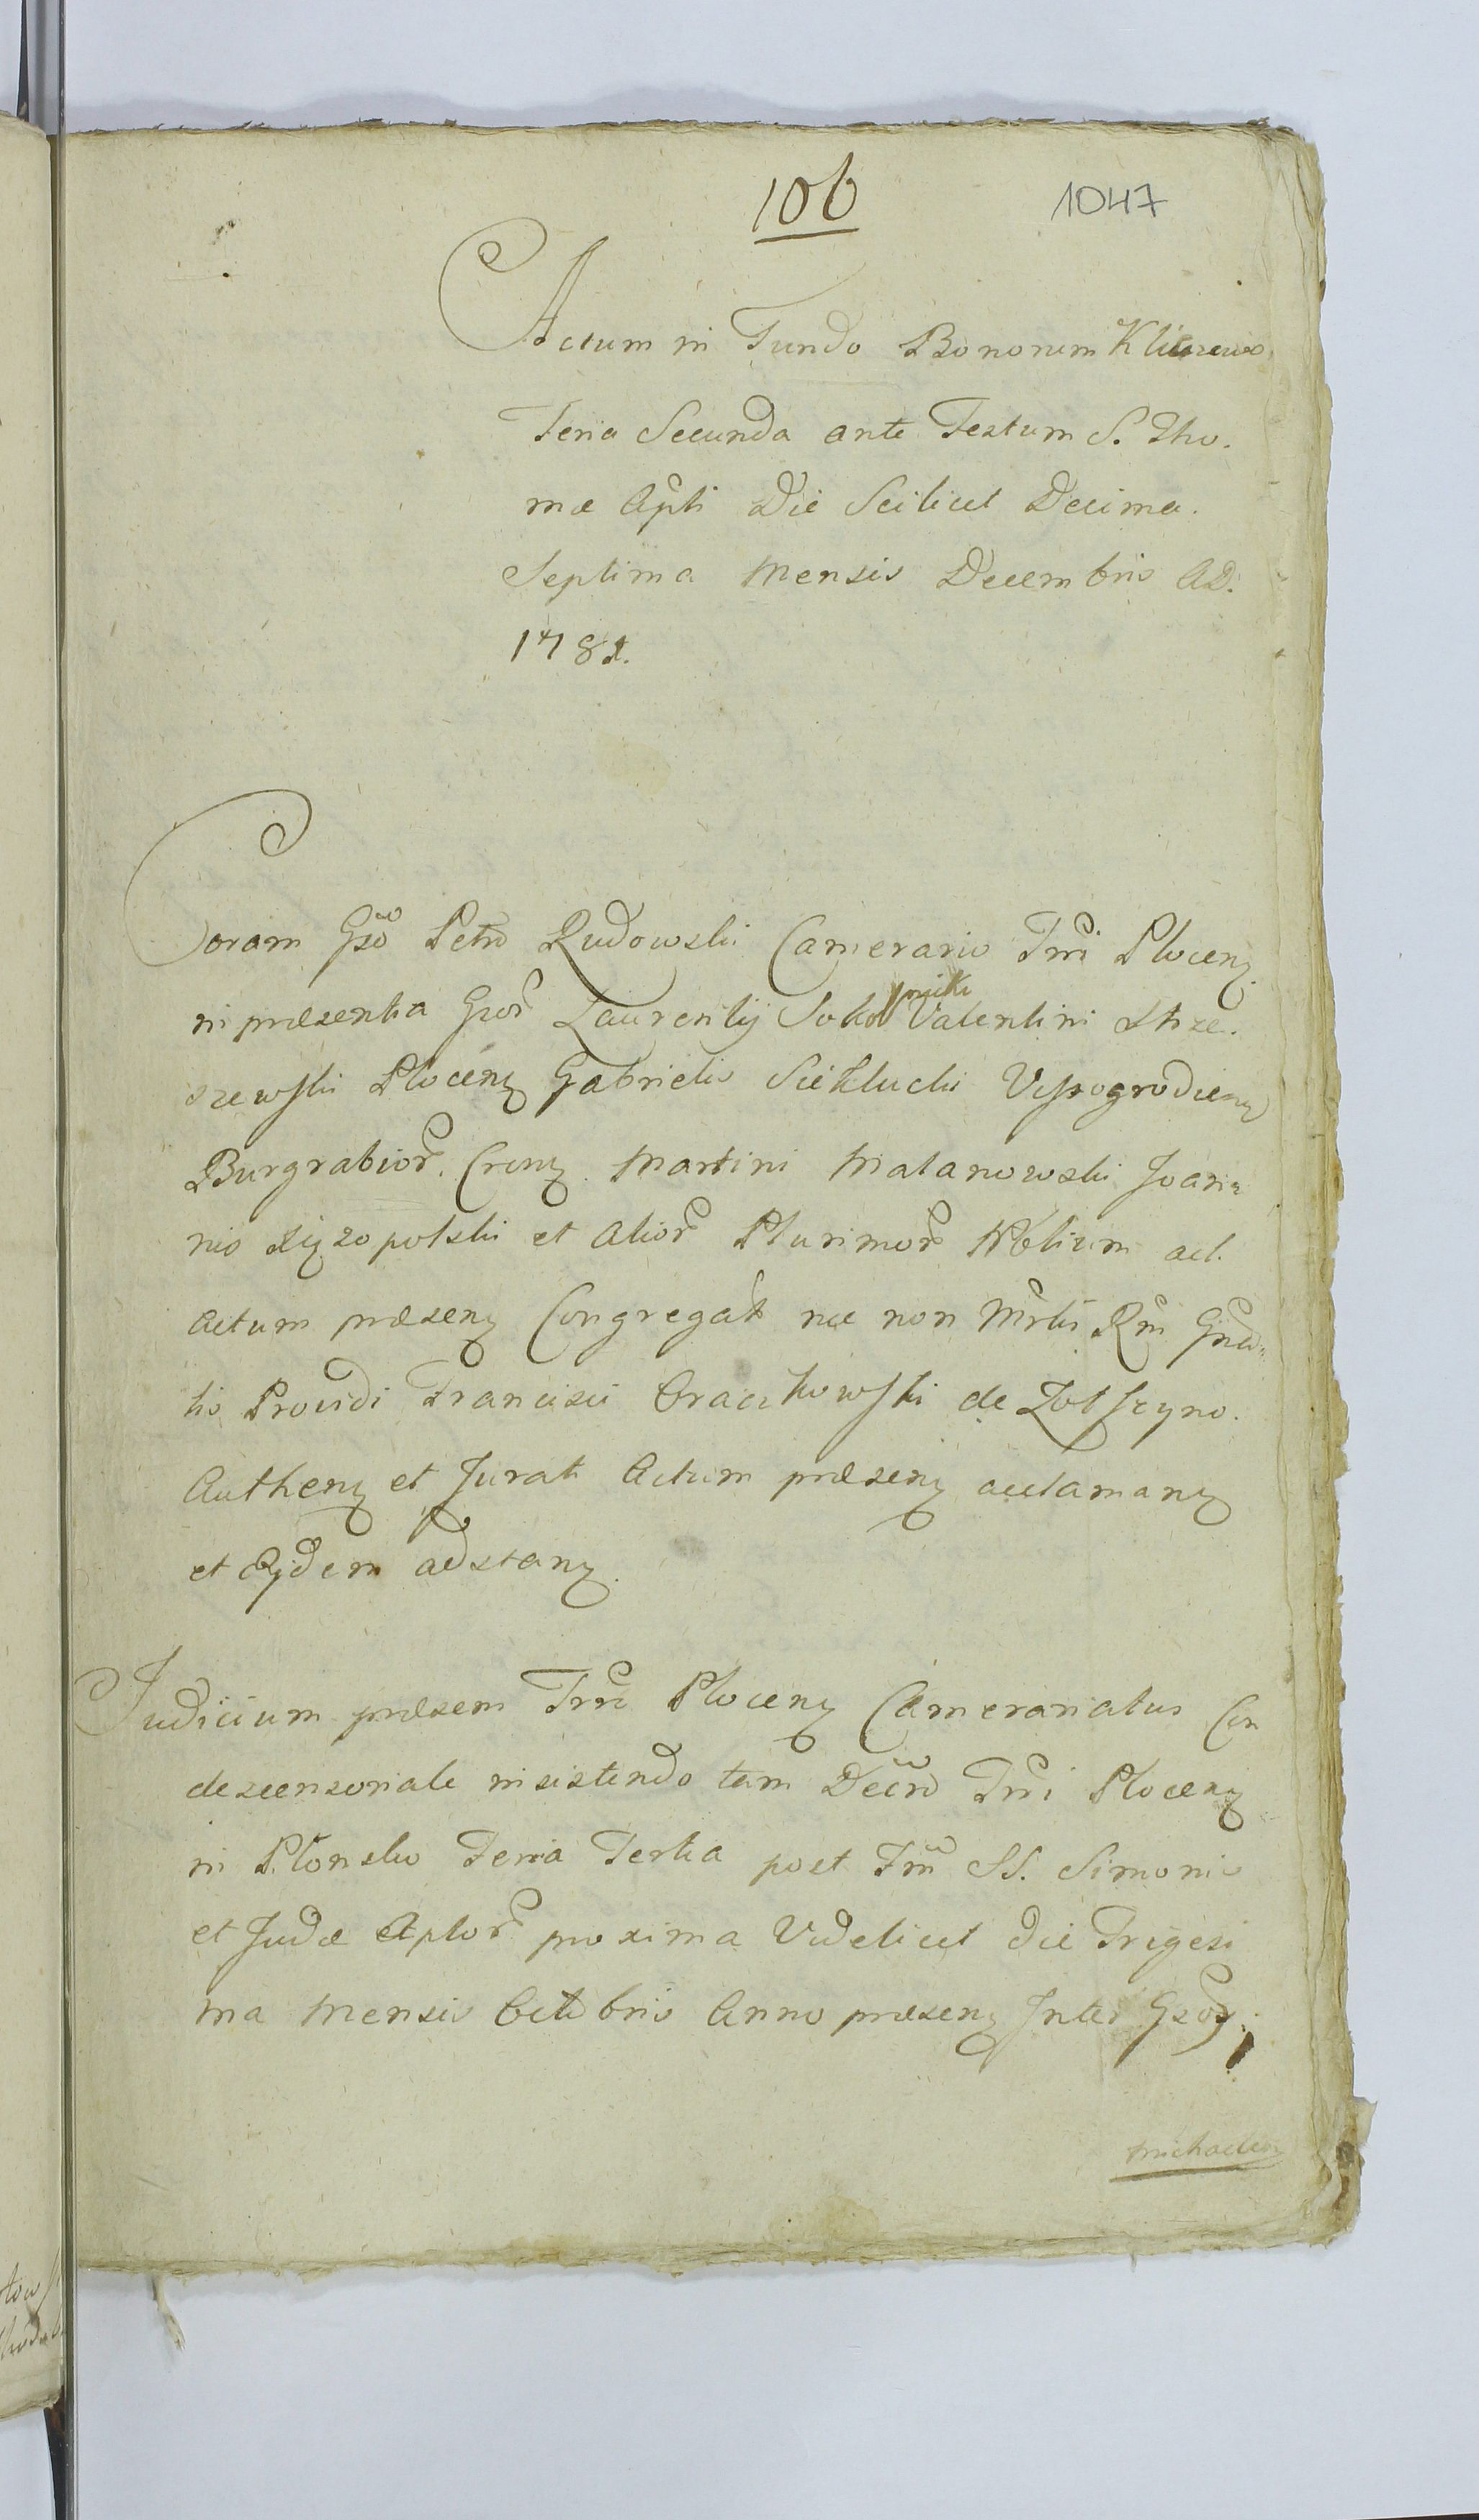 106
1047
Actum in Fundo Bonorum
Feria Secunda ante Festum S. Tho.
mæ Apli Die Scilicet Decima.
Septima Mensis Decembris AD.
1781.
Coram Gso Petro Rudowski Camerario Trri Plocen
in præsentia Gsor Laurentij Sokolnicki Valentini Strze.
szewski Plocen Gabrielis Siekłucki Vyszogrodien
Burgrabior. Cren Martini Malanowski Joan
nis Xięzopolski et Alior Plurimor Nbilium ad.
Actum præsen Congregat nec non Mrlis Rni Gnra
lis Providi Francisci Oraczkowski de
Authen et Jurati Actum præsen acclaman
et Eydem adstan.
Judicium præsens Trre Plocen Camerariatus Con
descensoriale insistendo tam Decro Trri Plocen
in Płonsko Feria Tertia post Fm SS. Simonis
et Judæ Aplor proxima Videlicet die Trigesi
ma Mensis Octobris Anno præsen Inter Gsos
Michaelem